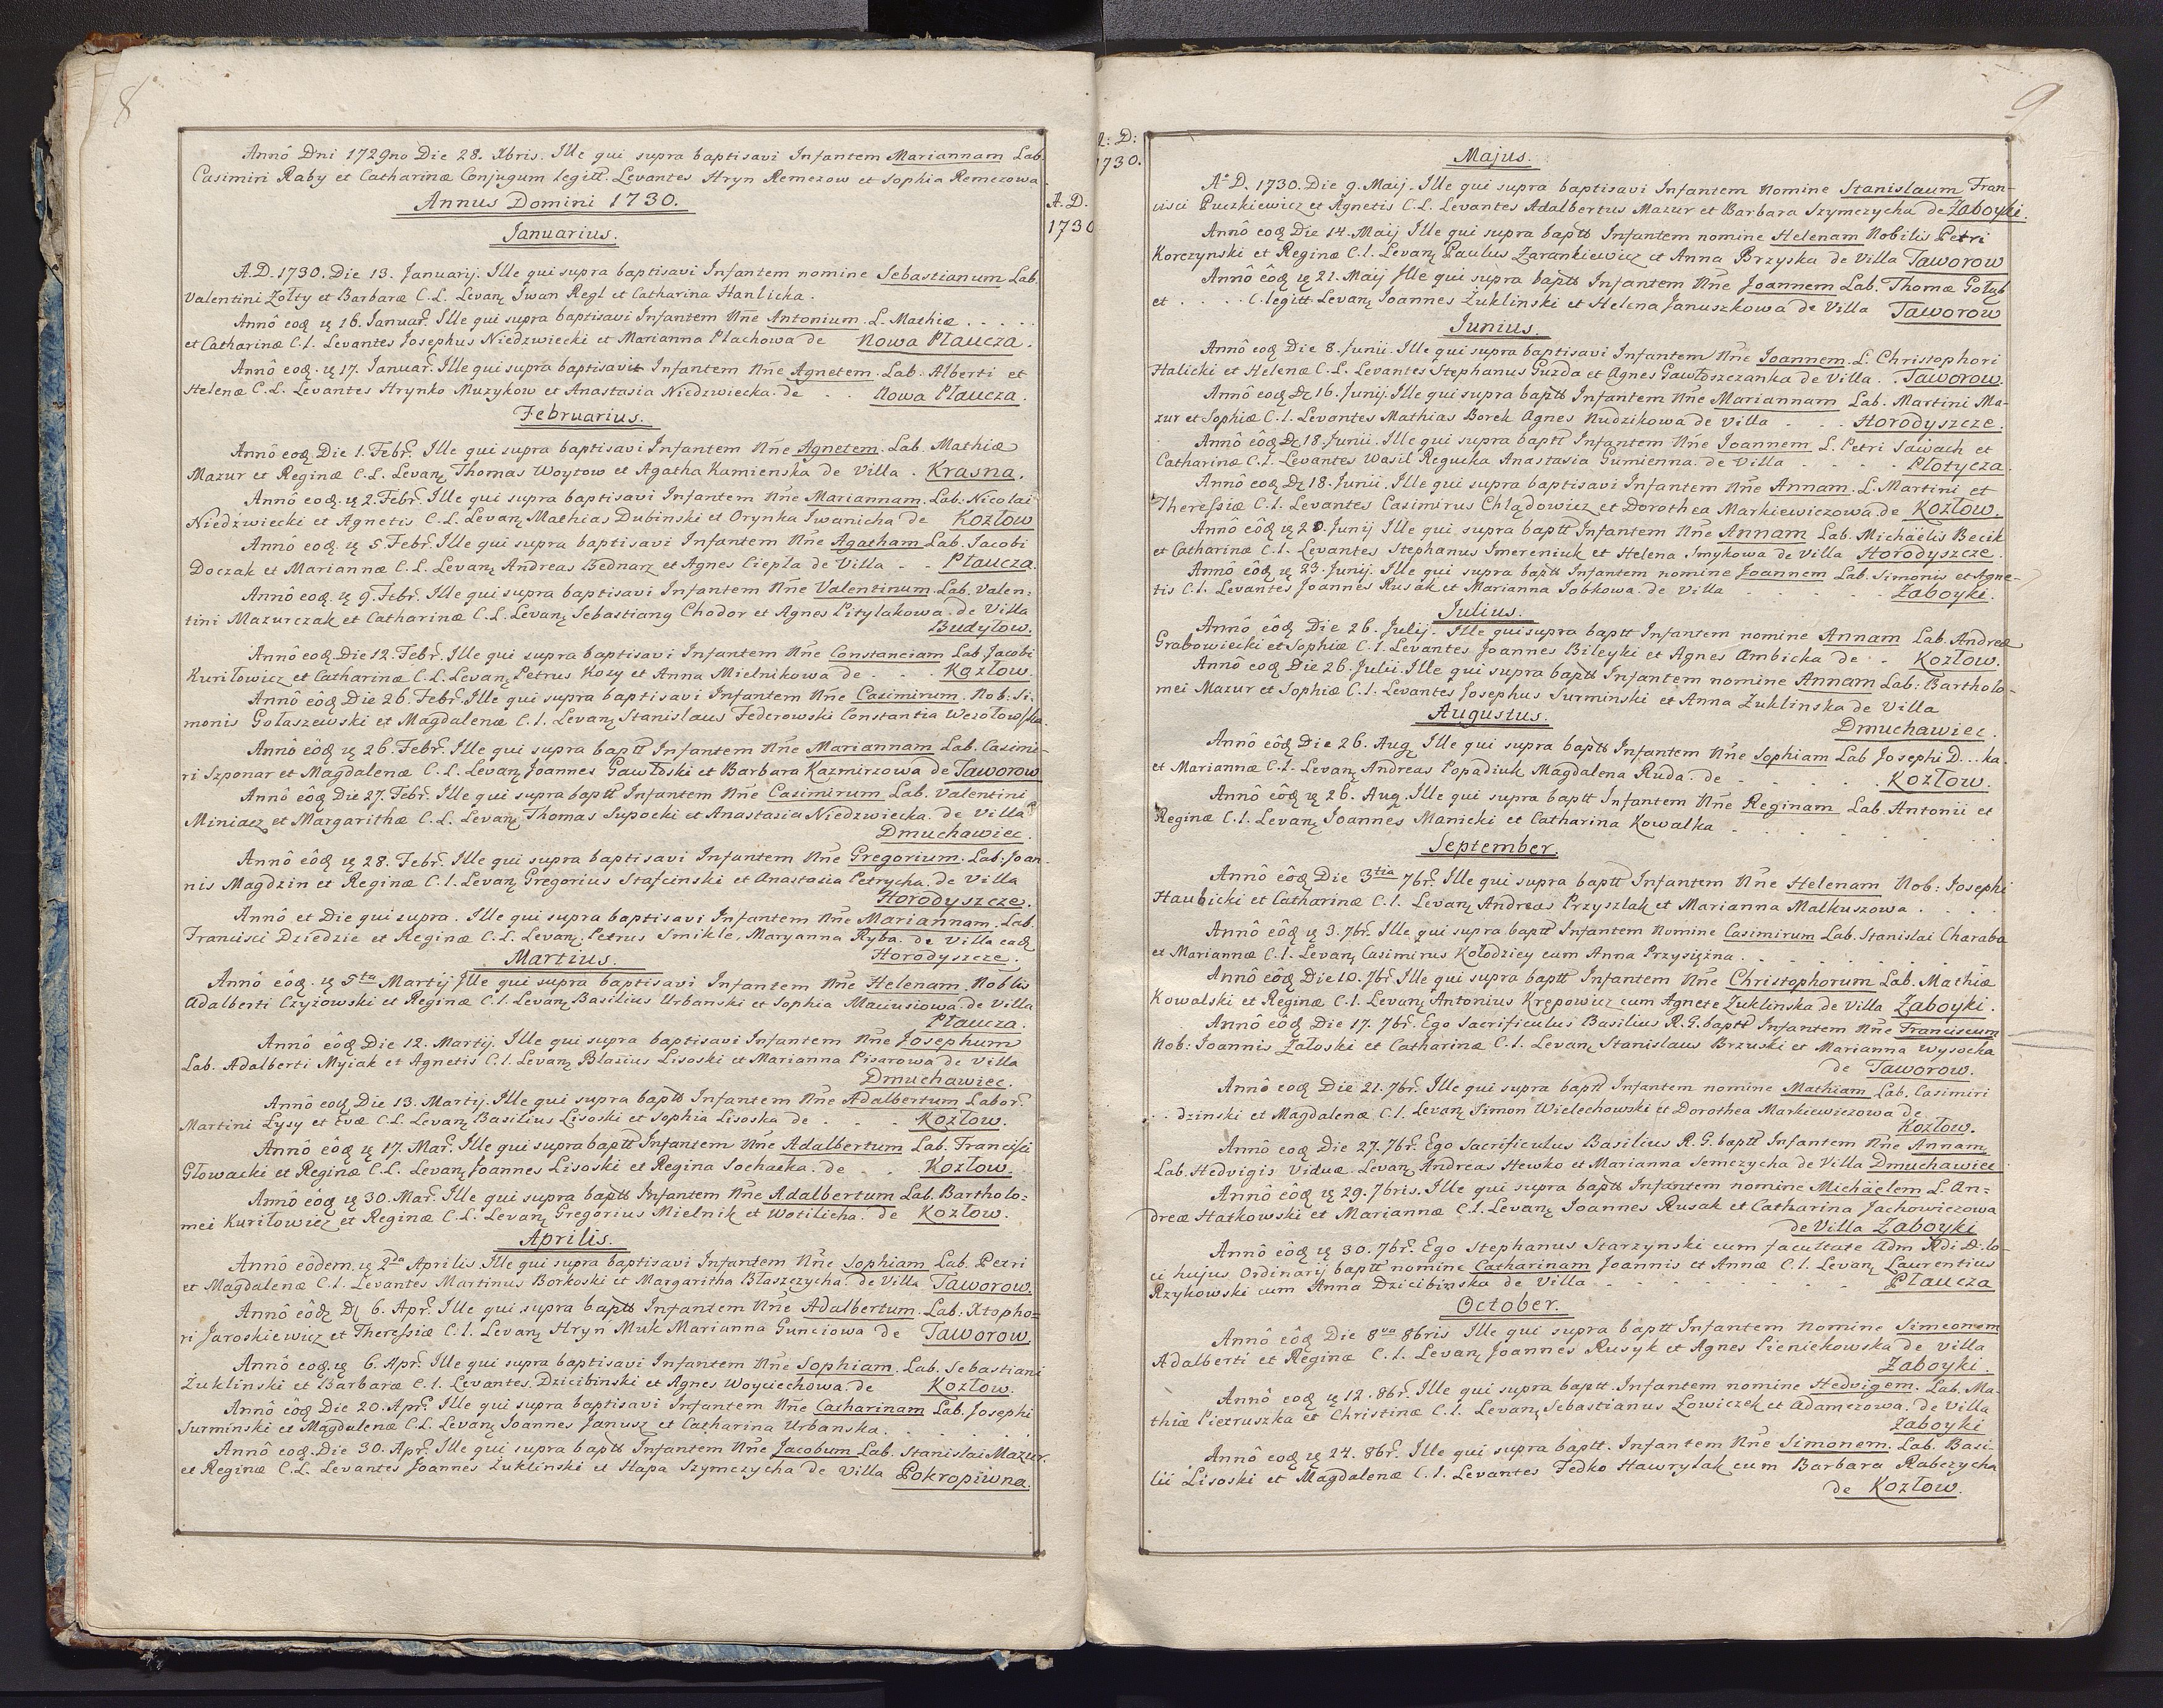 8
Annô Dni 1729no Die 28. Xbris. Ille qui supra baptisavi Infantem Mariannam Lab.
Casimiri Raby et Catharinæ Conjugum legitt. Levantes Hryn Remezow et Sophia Remezowa
Annus Domini 1730.
A. D. 1730
Januarius.
A.D. 1730. Die 13. Januarij. Ille qui supra baptisavi Infantem nomine Sebastianum Lab.
Valentini Zołty et Barbaræ C.L. Levan. Iwan Regl et Catharina Hanlicka.
Annô eod. D. 16. Januar. Ille qui supra baptisavi Infantem Nne Antonium. L. Mathiæ . . . . .
et Catharinæ C.l. Levantes Josephus Niedzwiecki et Marianna Plachowa de Nowa Płaucza.
Annô eod. D. 17. Januar. Ille qui supra baptisavit Infantem Nne Agnetem. Lab. Alberti et
Helenæ C.L. Levantes Hrynko Muzykow et Anastasia Niedzwiecka. de . . Nowa Płaucza.
Februarius.
Annô eod. Die 1. Febr. Ille qui supra baptisavi Infantem Nne Agnetem. Lab. Mathiæ
Mazur et Reginæ C.L. Levan. Thomas Woytow et Agatha Kamienska de Villa . Krasna.
Annô eod. D. 2. Febr. Ille qui supra baptisavi Infantem Nne Mariannam. Lab. Nicolai
Niedzwiecki et Agnetis C.L. Levan. Mathias Dubinski et Orynka Iwanicha de Kozłow
Annô eod. D. 5. Febr. Ille qui supra baptisavi Infantem Nne Agatham Lab. Jacobi
Doczak et Mariannæ C.L. Levan. Andreas Bednarz et Agnes Ciepła de Villa - - Płaucza.
Annô eod. D. 9. Febr. Ille qui supra baptisavi Infantem Nne Valentinum. Lab. Valen:
tini Mazurczak et Catharinæ C.L. Levan. Sebastiang Chodor et Agnes Pitylakowa. de Villa
Budyłow.
Annô eod. Die 12. Febr. Ille qui supra baptisavi Infantem Nne Constanciam Lab Jacobi
Kuriłowicz et Catharinæ C.L. Levan. Petrus Kozy et Anna Mielnikowa de . . . Kozłow.
Annô eôd. Die 26. Febr. Ille qui supra baptisavi Infantem Nne Casimirum. Nob: Si-
monis Gołaszewski et Magdalenæ C.l. Levan. Stanislaus Federowski Constantia Wezołowska
Annô eôd. D. 26. Febr. Ille qui supra baptt Infantem Nne Mariannam Lab. Casimi-
ri Szponar et Magdalenæ C.L. Levan. Joannes Gawłoski et Barbara Kazmirzowa de Taworow
Annô eôd. Die 27. Febr. Ille qui supra baptt Infantem Nne Casimirum Lab. Valentini
Miniacz et Margarithæ C.L. Levan. Thomas Supocki et Anastasia Niedzwiecka. de Villa
Dmuchawiec.
Annô eôd. D. 28. Febr. Ille qui supra baptisavi Infantem Nne Gregorium. Lab: Joan-
nis Magdzin et Reginæ C.l. Levan. Gregorius Stascinski et Anastasia Petrycha. de Villa
Horodyszcze.
Annô et Die qui supra. Ille qui supra baptisavi Infantem Nne Mariannam. Lab.
Francisci Dziedzic et Reginæ C.L. Levan. Petrus Smikle, Maryanna Ryba. de Villa ead.
Horodyszcze.
Martius.
Annô eôd. D. 5ta Martij Ille qui supra baptisavi Infantem Nne Helenam. Noblis
Adalberti Czyżowski et Reginæ C.l. Levan. Basilius Urbanski et Sophia Maciusiowa. de Villa
Płaucza.
Annô eôd. Die 12. Martij. Ille qui supra baptisavi Infantem Nne Josephum
Lab. Adalberti Myiak et Agnetis C.l. Levan. Blasius Lisoski et Marianna Pisarowa de Villa
Dmuchawiec.
Annô eod. Die 13. Martij. Ille qui supra baptt Infantem Nne Adalbertum Labor.
Martini Łysy et Evæ C.L. Levan. Basilius Lisoski et Sophia Lisoska de . . . Kozłow.
Annô eôd. D. 17. Mar. Ille qui supra baptt Infantem Nne Adalbertum Lab. Francisci
Głowacki et Reginæ C.L. Levan. Joannes Lisoski et Regina Sochacka. de . . Kozłow.
Annô eôd. D. 30. Mar. Ille qui supra baptt Infantem Nne Adalbertum Lab. Bartholo:
mei Kuriłowicz et Reginæ C.L. Levan. Gregorius Mielnik et Wotilicha. de Kozłow.
Aprilis.
Annô eôdem. D. 2da Aprilis. Ille qui supra baptisavi Infantem Nne Sophiam Lab. Petri
et Magdalenæ C.l. Levantes Martinus Borkoski et Margaritha Błaszczycha. de Villa Taworow.
Annô eôd. D. 6. Apr. Ille qui supra baptt Infantem Nne Adalbertum. Lab. Xtopho=
ri Jaroskiewicz et Theressiæ C.l. Levan. Hryń Muk Marianna Gunciowa de Taworow.
Annô eod. D. 6. Apr. Ille qui supra baptisavi Infantem Nne Sophiam. Lab. Sebastiani
Żuklinski et Barbaræ C.l. Levantes. Dzicibinski et Agnes Woyciechowa. de Kozłow.
Annô eôd. Die 20. Apr. Ille qui supra baptisavi Infantem Nne Catharinam Lab. Josephi
Surminski et Magdalenæ C.L. Levan. Joannes Janusz et Catharina Urbanska.
Annô eod. Die 30. Apr. Ille qui supra baptt Infantem Nne Jacobum Lab. Stanislai Mazur.
et Reginæ C.L. Levantes Joannes Żuklinski et Hapa Szymczycha de Villa Pokropiwna.
9
A: D: 1730.
Majus.
Ao D. 1730. Die 9. Maij. Ille qui supra baptisavi Infantem Nomine Stanislaum Fran-
cisci Puczkiewicz et Agnetis C.L. Levantes Adalbertus Mazur et Barbara Szymczycha de Zaboyki.
Annô eod. Die 14. Maij Ille qui supra baptt Infantem nomine Helenam Nobilis Petri
Korczynski et Reginæ C.l. Levan. Paulus Zarankiewicz et Anna Brzyska de Villa Taworow
Annô eôd. D. 21. Maij Ille qui supra baptt Infantem Nne Joannem Lab. Thomæ Gołąb
et . . . . C. legitt. Levan. Joannes Żuklinski et Helena Januszkowa de Villa Taworow
Junius.
Annô eod. Die 8. Junii. Ille qui supra baptisavi Infantem Nne Joannem. L. Christophori
Halicki et Helenæ C.L. Levantes Stephanus Guzda et Agnes Gawłoszczanka de Villa . . Taworow.
Annô eod. D. 16. Junij. Ille qui supra baptt Infantem Nne Mariannam Lab. Martini Ma-
zur et Sophiæ C.l. Levantes Mathias Borek Agnes Nudzikowa de Villa . . . Horodyszcze.
Annô eôd. D. 18. Junii. Ille qui supra baptt Infantem Nne Joannem L. Petri Sawach et
Catharinæ C.l. Levantes Wasil Regucka Anastasia Gumienna. de Villa . . . . Płotycza.
Annô eod. D. 18. Junii. Ille qui supra baptisavi Infantem Nne Annam. L. Martini et
Theressiæ C.l. Levantes Casimirus Chlądowicz et Dorothea Markiewiczowa. de Kozłow.
Annô eôd. D. 20. Junij Ille qui supra baptt Infantem Nne Annam Lab. Michäelis Becik
et Catharinæ C.l. Levantes Stephanus Smereniuk et Helena Smykowa de Villa Horodyszcze.
Annô eôd. D. 23. Junij. Ille qui supra baptt Infantem nomine Joannem Lab. Simonis et Agne-
tis C.l. Levantes Joannes Rusak et Marianna Sobkowa. de Villa . . . . . Zaboyki.
Julius.
Annô eôd. Die 26. Julij. Ille qui supra baptt Infantem nomine Annam Lab. Andreæ
Grabowiecki et Sophiæ C.l. Levantes Joannes Bileyki et Agnes Ambicka de . . Kozłow.
Annô eod. Die 26. Julii. Ille qui supra baptt Infantem nomine Annam Lab: Bartholo-
mei Mazur et Sophiæ C.l. Levantes Josephus Surminski et Anna Żuklinska de Villa
Dmuchawiec.
Augustus.
Annô eôd. Die 26. Aug. Ille qui supra baptt Infantem Nne Sophiam Lab Josephi D...ka
et Mariannæ C.l. Levan. Andreas Popadiuk Magdalena Ruda. de . . . . . Kozłow.
Annô eôd. D. 26. Aug. Ille qui supra baptt Infantem Nne Reginam Lab. Antonii et
Reginæ C.l. Levan. Joannes Manicki et Catharina Kowalka . . . . . .
September.
Annô eôd. Die 3tia 7br. Ille qui supra baptt Infantem Nne Helenam Nob: Josephi
Haubicki et Catharinæ C.l. Levan. Andreas Przyszlak et Marianna Malkuszowa . . . .
Annô eôd. D. 3. 7br. Ille qui supra baptt Infantem Nomine Casimirum Lab. Stanislai Charaba
et Mariannæ C.l. Levan. Casimirus Kołodziey cum Anna Przysięzna . . . . . .
Annô eôd. Die 10. 7br Ille qui supra baptt Infantem Nne Christophorum Lab. Mathiæ
Kowalski et Reginæ C.l. Levan. Antonius Krępowicz cum Agnete Żuklinska de Villa Zaboyki.
Annô eôd. Die 17. 7br. Ego Sacrificulus Basilius R.G. baptt Infantem Nne Franciscum
Nob: Joannis Załoski et Catharinæ C.l. Levan. Stanislaus Brzuski et Marianna Wysocka
de Taworow.
Annô eod. Die 21. 7br. Ille qui supra baptt Infantem nomine Mathiam Lab. Casimiri
. . dzinski et Magdalenæ C.l. Levan. Simon Wielechowski et Dorothea Markiewiczowa de
Kozłow.
Annô eod. Die 27. 7br. Ego Sacrificulus Basilius R. G. baptt Infantem Nne Annam
Lab. Hedvigis Viduæ. Levan. Andreas Hewko et Marianna Semczycha de Villa Dmuchawiec
Annô eôd. D. 29. 7bris. Ille qui supra baptt Infantem nomine Michäelem L. An=
dreæ Hatkowski et Mariannæ C.l. Levan. Joannes Rusak et Catharina Jachowiczowa
de Villa Zaboyki
Annô eôd. D. 30. 7br. Ego Stephanus Starzynski cum facultate Adm Rdi D. lo-
ci hujus Ordinarij baptt nomine Catharinam Joannis et Annæ C.l. Levan. Laurentius
Rzykowski cum Anna Dzicibinska de Villa . . . . . . . Płaucza
October.
Annô eôd. Die 8va 8bris Ille qui supra baptt Infantem Nomine Simeonem
Adalberti et Reginæ C.l. Levan. Joannes Rusyk et Agnes Pieniekowska de Villa
Zaboyki.
Annô eod. D. 12. 8br. Ille qui supra baptt. Infantem nomine Hedvigem. Lab. Ma-
thiæ Pietruszka et Christinæ C.l. Levan. Sebastianus Łowiczek et Adamczowa. de Villa
Zaboyki
Annô eod. D. 24. 8br. Ille qui supra baptt. Infantem Nne Simonem. Lab. Basi-
lii Lisoski et Magdalenæ C.l. Levantes Fedko Hawrylak cum Barbara Rabczycha
de Kozłow.